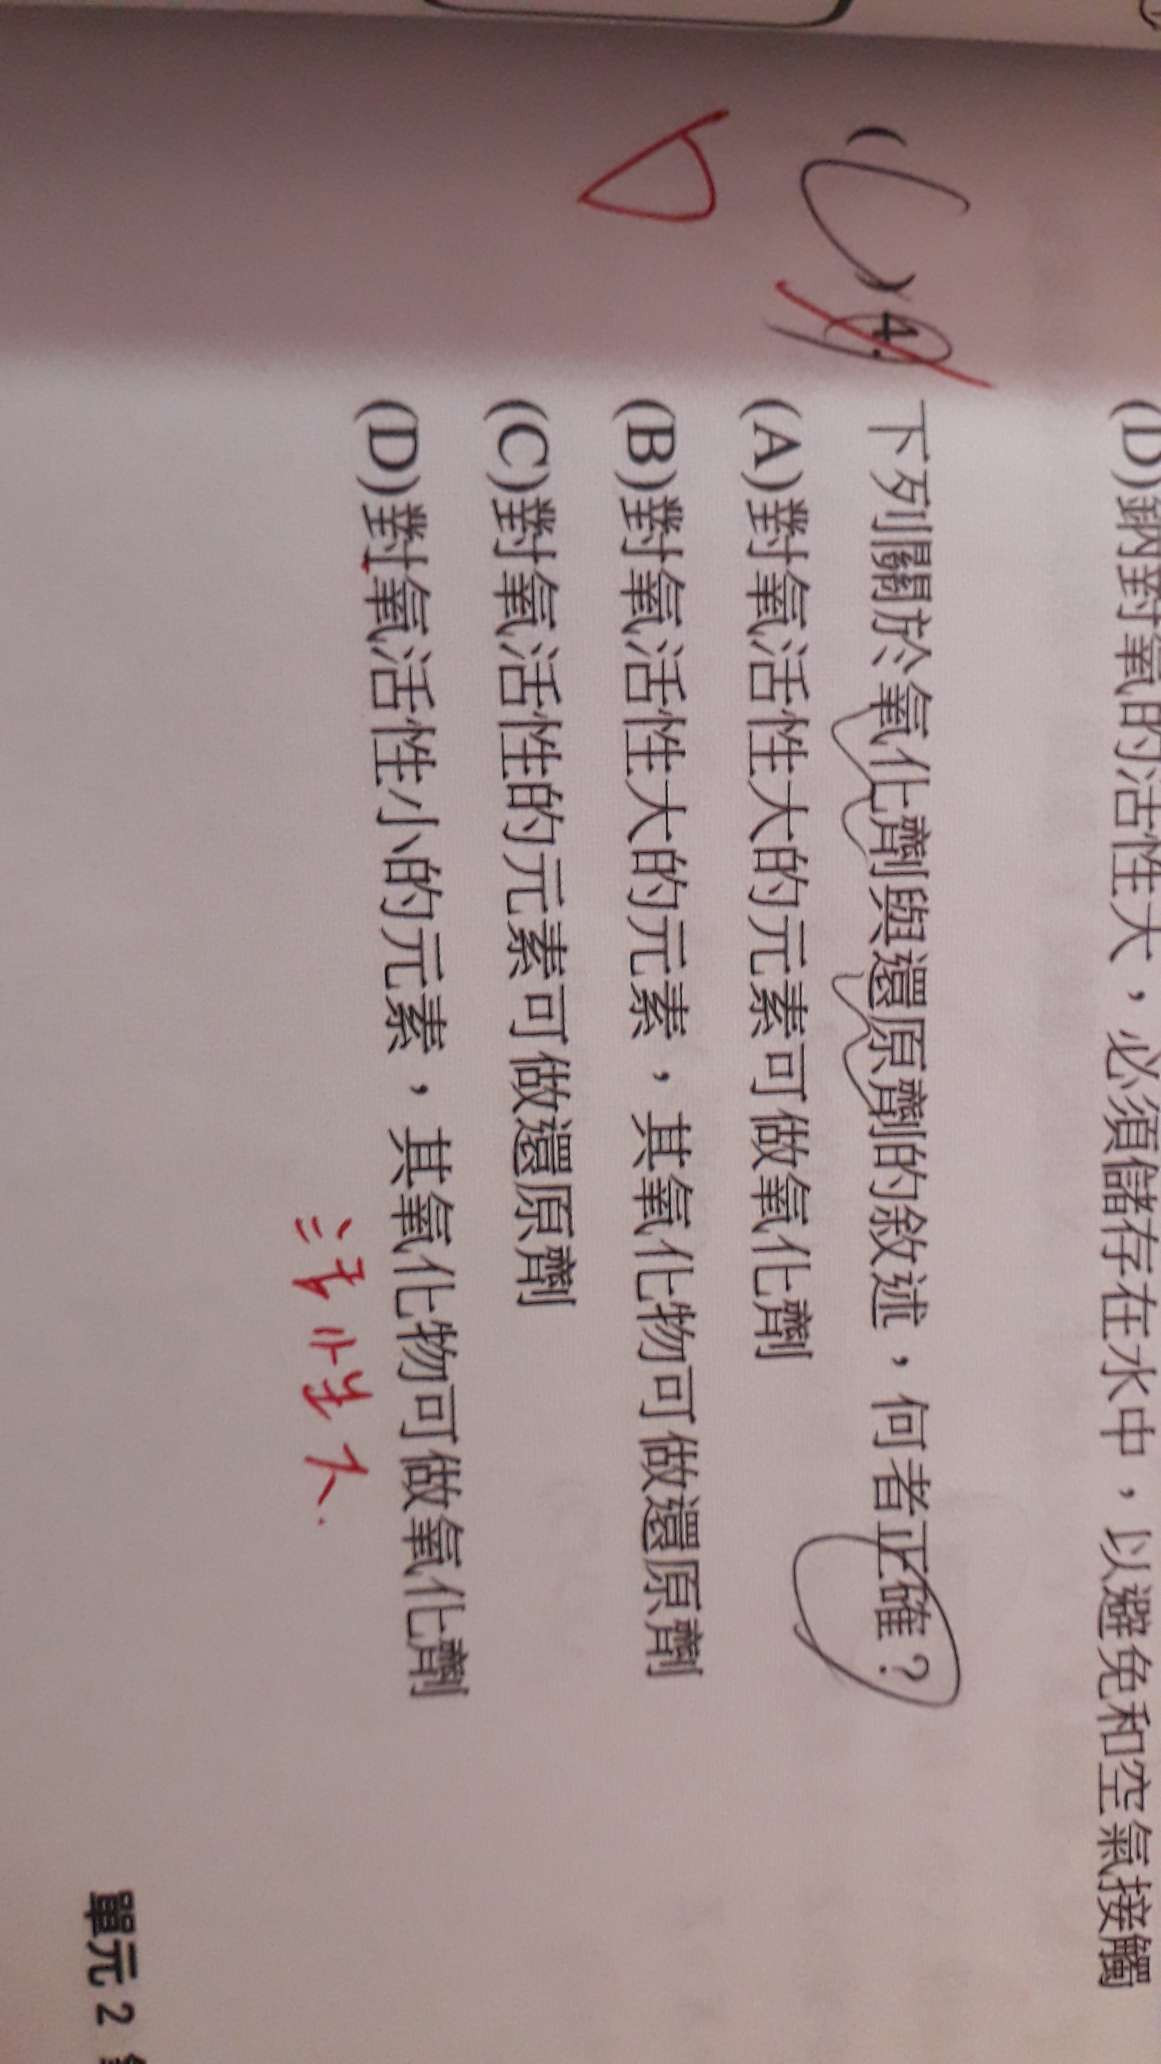 (D)鈉對氧的活性大，必須儲存在水中，以避免和空氣接觸
( C ) 4. 下列關於氧化劑與還原劑的敘述，何者正確？
(A)對氧活性大的元素可做氧化劑
D
(B)對氧活性大的元素，其氧化物可做還原劑
(C)對氧活性的元素可做還原劑
(D)對氧活性小的元素，其氧化物可做氧化劑
活性大
單元 2